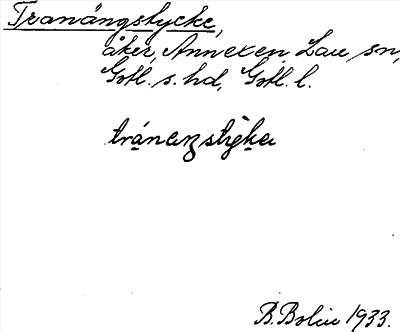 Tranängstycke,
åker, Annexen, Lau sn,
Gotl. s. hd, Gotl. l.
tránaŋstyka
B. Bolin 1933.